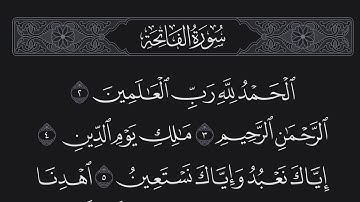 سُورَةُ الْفَاتِحَةِ
ٱلْحَمْدُ لِلَّهِ رَبِّ ٱلْعَٰلَمِينَ ٢
ٱلرَّحْمَٰنِ ٱلرَّحِيمِ ٣ مَٰلِكِ يَوْمِ ٱلدِّينِ ٤
إِيَّاكَ نَعْبُدُ وَإِيَّاكَ نَسْتَعِينُ ٥ ٱهْدِنَا